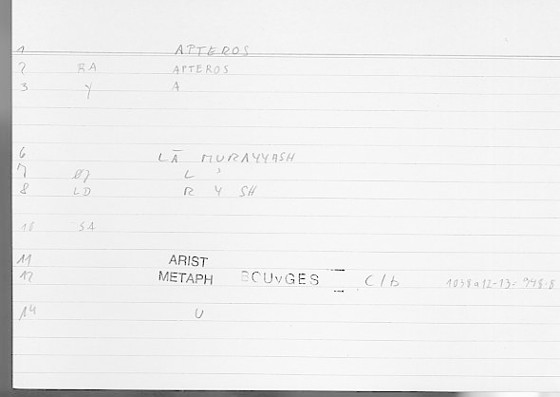 1 APTEROS
2 RA APTEROS
3 Y A
6 LĀ MURAYYASH
7 L ʾ
8 LD R Y SH
10 SA
11 ARIST
12 METAPH BOUYGES C/b 1038a12-13
14 U